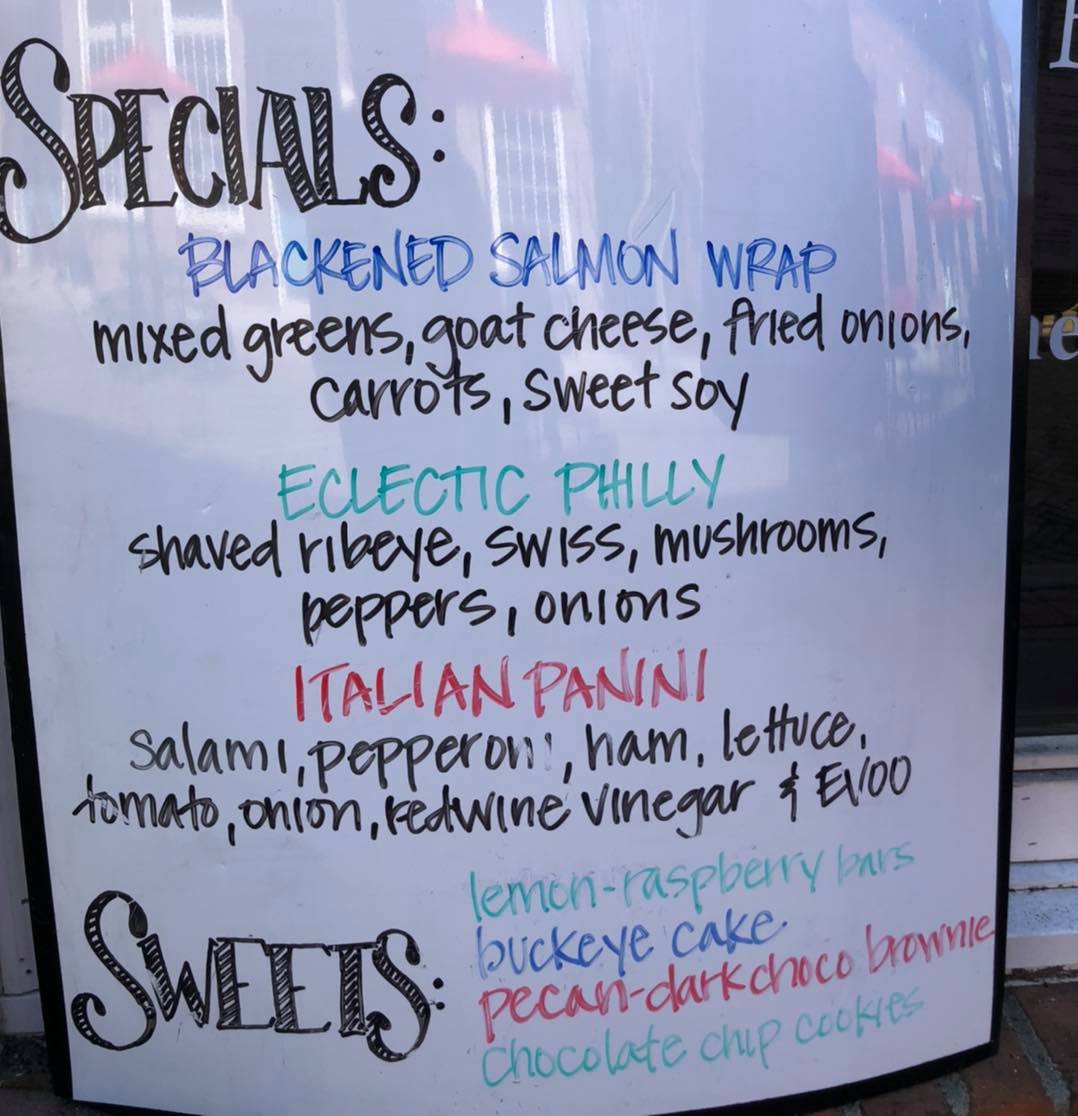 SPECIALS:
BLACKENED SALMON WRAP
mixed greens, goat cheese, fried onions,
carrots, sweet soy
ECLECTIC PHILLY
shaved ribeye, swiss, mushrooms,
peppers, onions
ITALIAN PANINI
salami, pepperoni, ham, lettuce,
tomato, onion, red wine vinegar & EVOO
SWEETS:
lemon-raspberry bars
buckeye cake
pecan-dark choco brownie
chocolate chip cookies